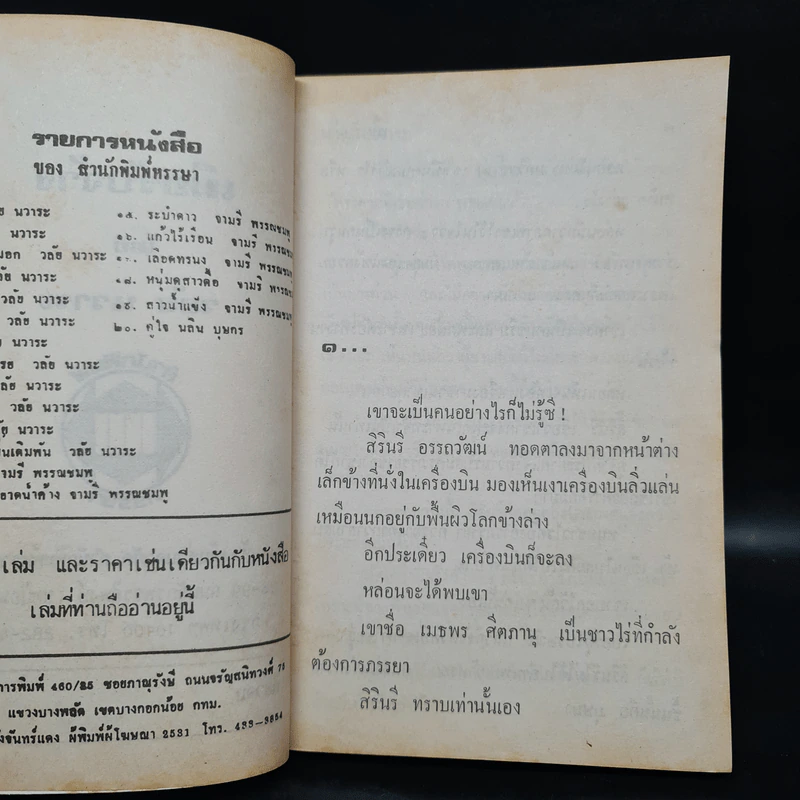 รายการหนังสือ
ของ สำนักพิมพ์หรรษา
วลัย นวาระ
นวาระ
วลัย นวาระ
วลัย นวาระ
วลัย นวาระ
วลัย นวาระ
วลัย นวาระ
วลัย นวาระ
วลัย นวาระ
วลัย นวาระ
วลัย นวาระ
จามรี พรรณชมพู
หยาดน้ำค้าง จามรี พรรณชมพู
๑๕. ระบำดาว จามรี พรรณชมพู
๑๖. แก้วไร้เรือน จามรี พรรณชมพู
๑๗. เลือดทรนง จามรี พรรณชมพู
๑๘. หนุ่มดุสาวดื้อ จามรี พรรณชมพู
๑๙. สาวน้ำแข็ง จามรี พรรณชมพู
๒๐. คู่ใจ นลิน บุษกร
เล่ม และราคาเช่นเดียวกันกับหนังสือ
เล่มที่ท่านถืออ่านอยู่นี้
การพิมพ์ 460/25 ซอยภาณุรังษี ถนนจรัญสนิทวงศ์ 75
แขวงบางพลัด เขตบางกอกน้อย กทม.
จันทร์แดง ผู้พิมพ์ผู้โฆษณา 2531 โทร. 433-3854
๑...
เขาจะเป็นคนอย่างไรก็ไม่รู้ซี !
สิรินรี อรรถวัฒน์ ทอดตาลงมาจากหน้าต่าง
เล็กข้างที่นั่งในเครื่องบิน มองเห็นเงาเครื่องบินลิ่วแล่น
เหมือนนกอยู่กับพื้นผิวโลกข้างล่าง
อีกประเดี๋ยว เครื่องบินก็จะลง
หล่อนจะได้พบเขา
เขาชื่อ เมธพร ศีตภานุ เป็นชาวไร่ที่กำลัง
ต้องการภรรยา
สิรินรี ทราบเท่านั้นเอง